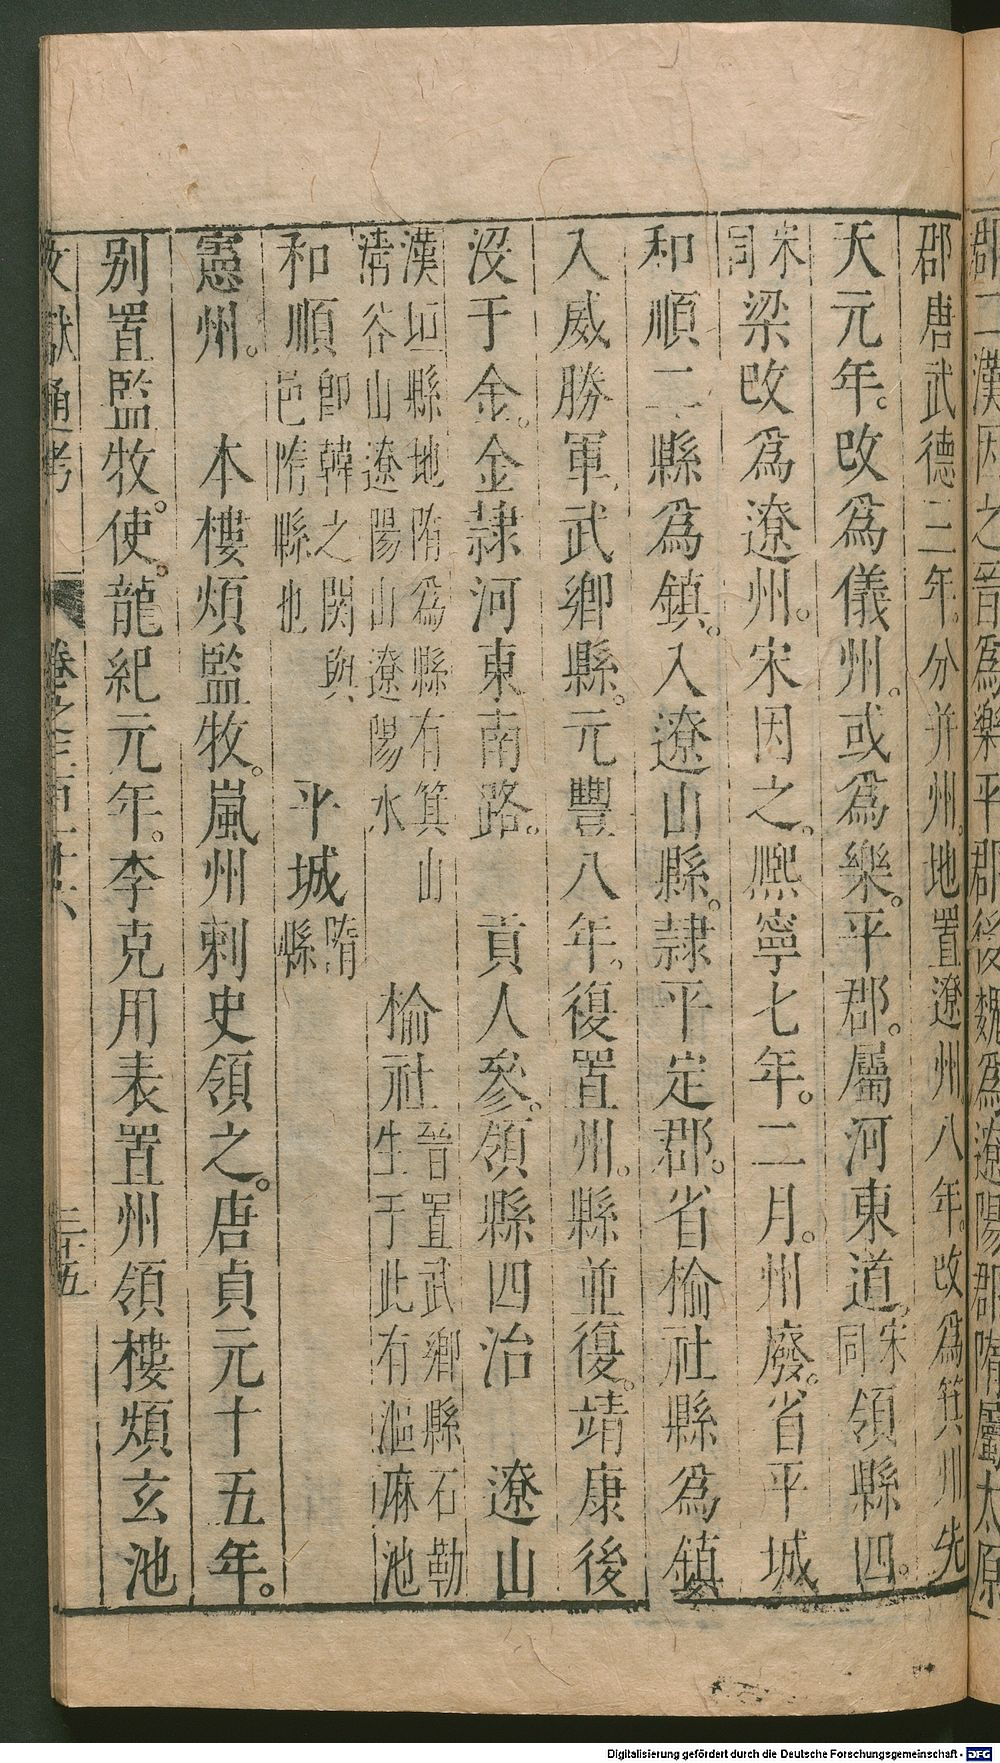 郡二漢因之晉爲樂平郡後魏爲遼陽郡隋屬太原
郡唐武德三年。分并州。地置遼州八年。改爲箕州先
天元年。改爲儀州。或爲樂。平郡。屬河東道。宋同領縣四。
宋同梁改爲遼州。宋因之。熈寧七年。二月。州廢。省平城
和順二縣爲鎮。入遼山縣。隷平定郡。省榆社縣爲鎮
入威勝軍武鄉縣。元豐八年。復置州。縣並復。靖康後
没于金。金隷河東南路。 貢人參。領縣四治 遼山
漢垣縣地隋爲縣有箕山
清谷山遼陽山遼陽水
榆社
晉置武鄉縣石勒
生于此有漚麻池
和順
卽韓之閼與
邑隋縣也
平城
隋
縣
憲州。 本樓煩監牧。嵐州刺史領之。唐貞元十五年。
别置監牧。使。龍紀元年。李克用表置州領樓煩玄池
文獻通考
卷之三百十六
三十五
Digitalisierung gefördert durch die Deutsche Forschungsgemeinschaft - DFG